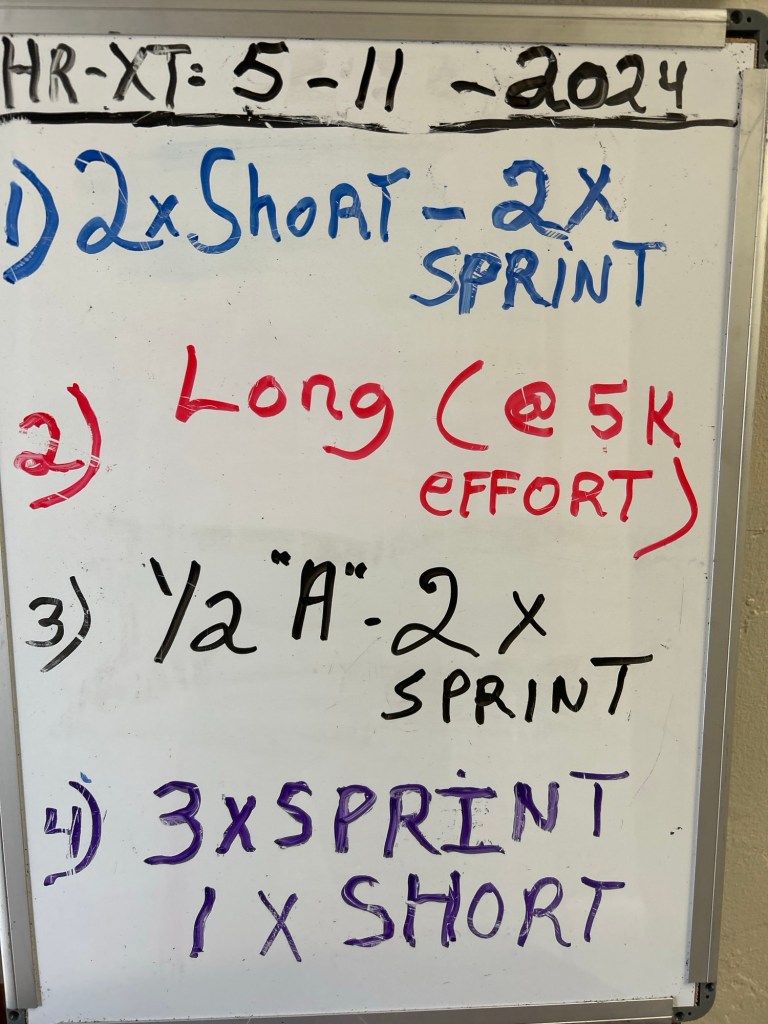 HR-XT: 5-11-2024
1) 2x ShoRT - 2X
SPRiNT
2) Long (@ 5K
eFFORT)
3) 1/2 "A" - 2 x
SPRINT
4) 3XSPRINT
1 X SHORT